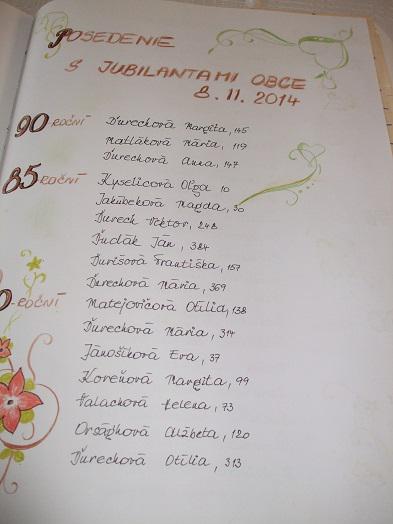 POSEDENIE
S JUBILANTAMI OBCE
8.11.2014
90 ROČNÍ
Ďurechová Margita, 145
Matláková Mária, 119
Ďurechová Anna, 147
85 ROČNÍ
Kyselicová Oľga 10
Jakúbeková Magda, 30
Ďurech Viktor, 248
Ďuďák Ján, 384
Ďurišová Františka, 157
Ďurechová Mária, 369
0-ROČNÍ
Matejovičová Otília, 138
Ďurechová Mária, 314
Jánošíková Eva, 37
Koreňová Margita, 99
Valachová Helena, 73
Orsághová Alžbeta, 120
Ďurechová Otília, 313